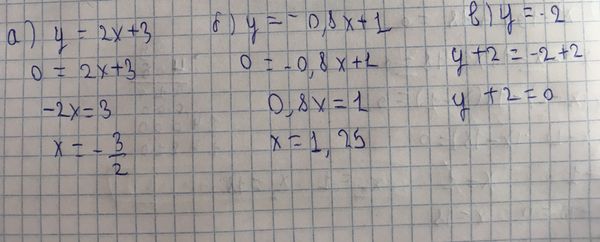 а) y = 2x+3
0 = 2x+3
-2x=3
x = - 3/2
б) y = -0,8x+1
0 = -0,8x+1
0,8x=1
x=1,25
в) y = -2
y+2 = -2+2
y +2=0